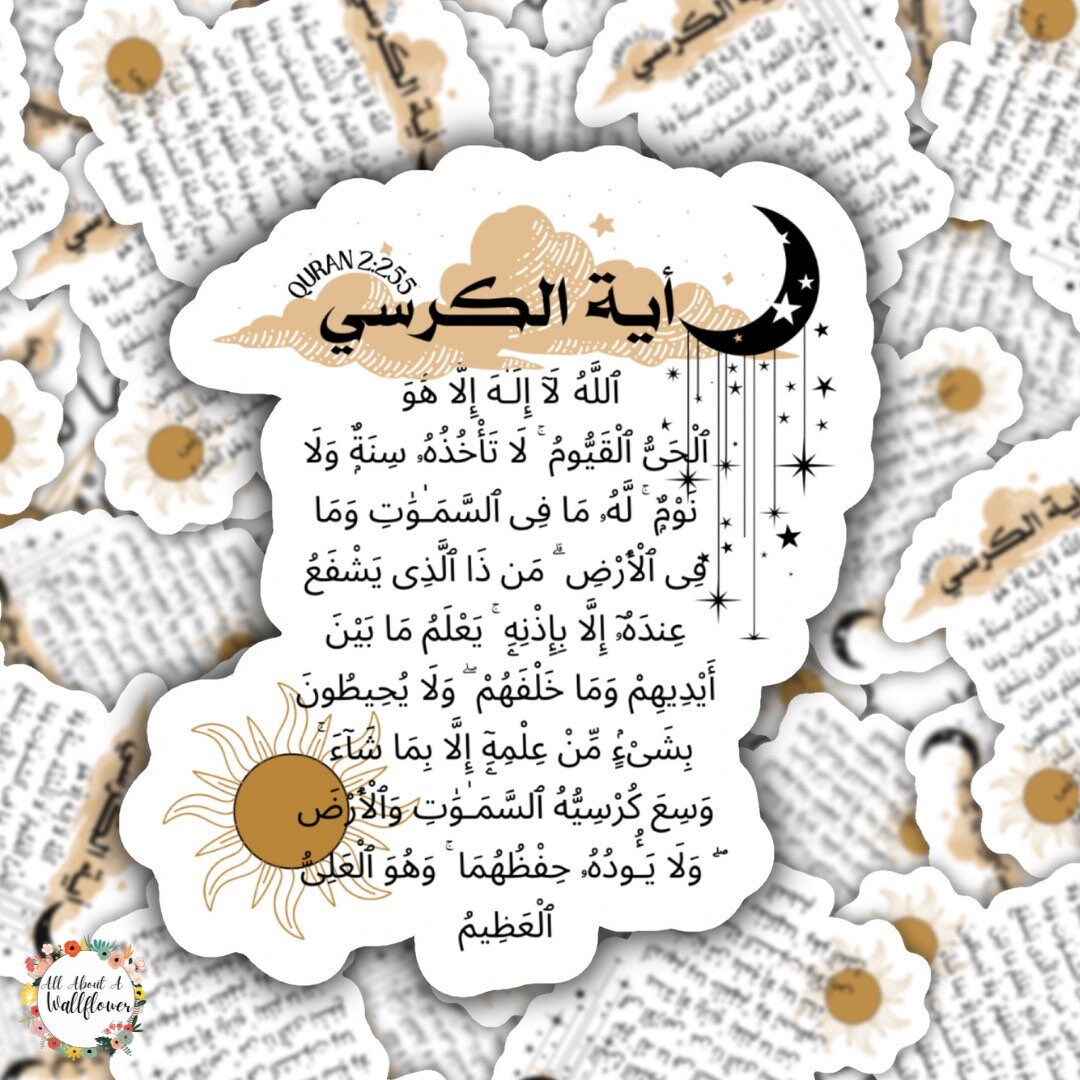 QURAN 2:255
أية الكرسي
ٱللَّهُ لَآ إِلَـٰهَ إِلَّا هُوَ
ٱلْحَىُّ ٱلْقَيُّومُ ۚ لَا تَأْخُذُهُۥ سِنَةٌۭ وَلَا
نَوْمٌۭ ۚ لَّهُۥ مَا فِى ٱلسَّمَـٰوَٰتِ وَمَا
فِى ٱلْأَرْضِ ۗ مَن ذَا ٱلَّذِى يَشْفَعُ
عِندَهُۥٓ إِلَّا بِإِذْنِهِۦ ۚ يَعْلَمُ مَا بَيْنَ
أَيْدِيهِمْ وَمَا خَلْفَهُمْ ۖ وَلَا يُحِيطُونَ
بِشَىْءٍۢ مِّنْ عِلْمِهِۦٓ إِلَّا بِمَا شَآءَ ۚ
وَسِعَ كُرْسِيُّهُ ٱلسَّمَـٰوَٰتِ وَٱلْأَرْضَ
ۖ وَلَا يَـُٔودُهُۥ حِفْظُهُمَا ۚ وَهُوَ ٱلْعَلِىُّ
ٱلْعَظِيمُ
All About A
Wallflower